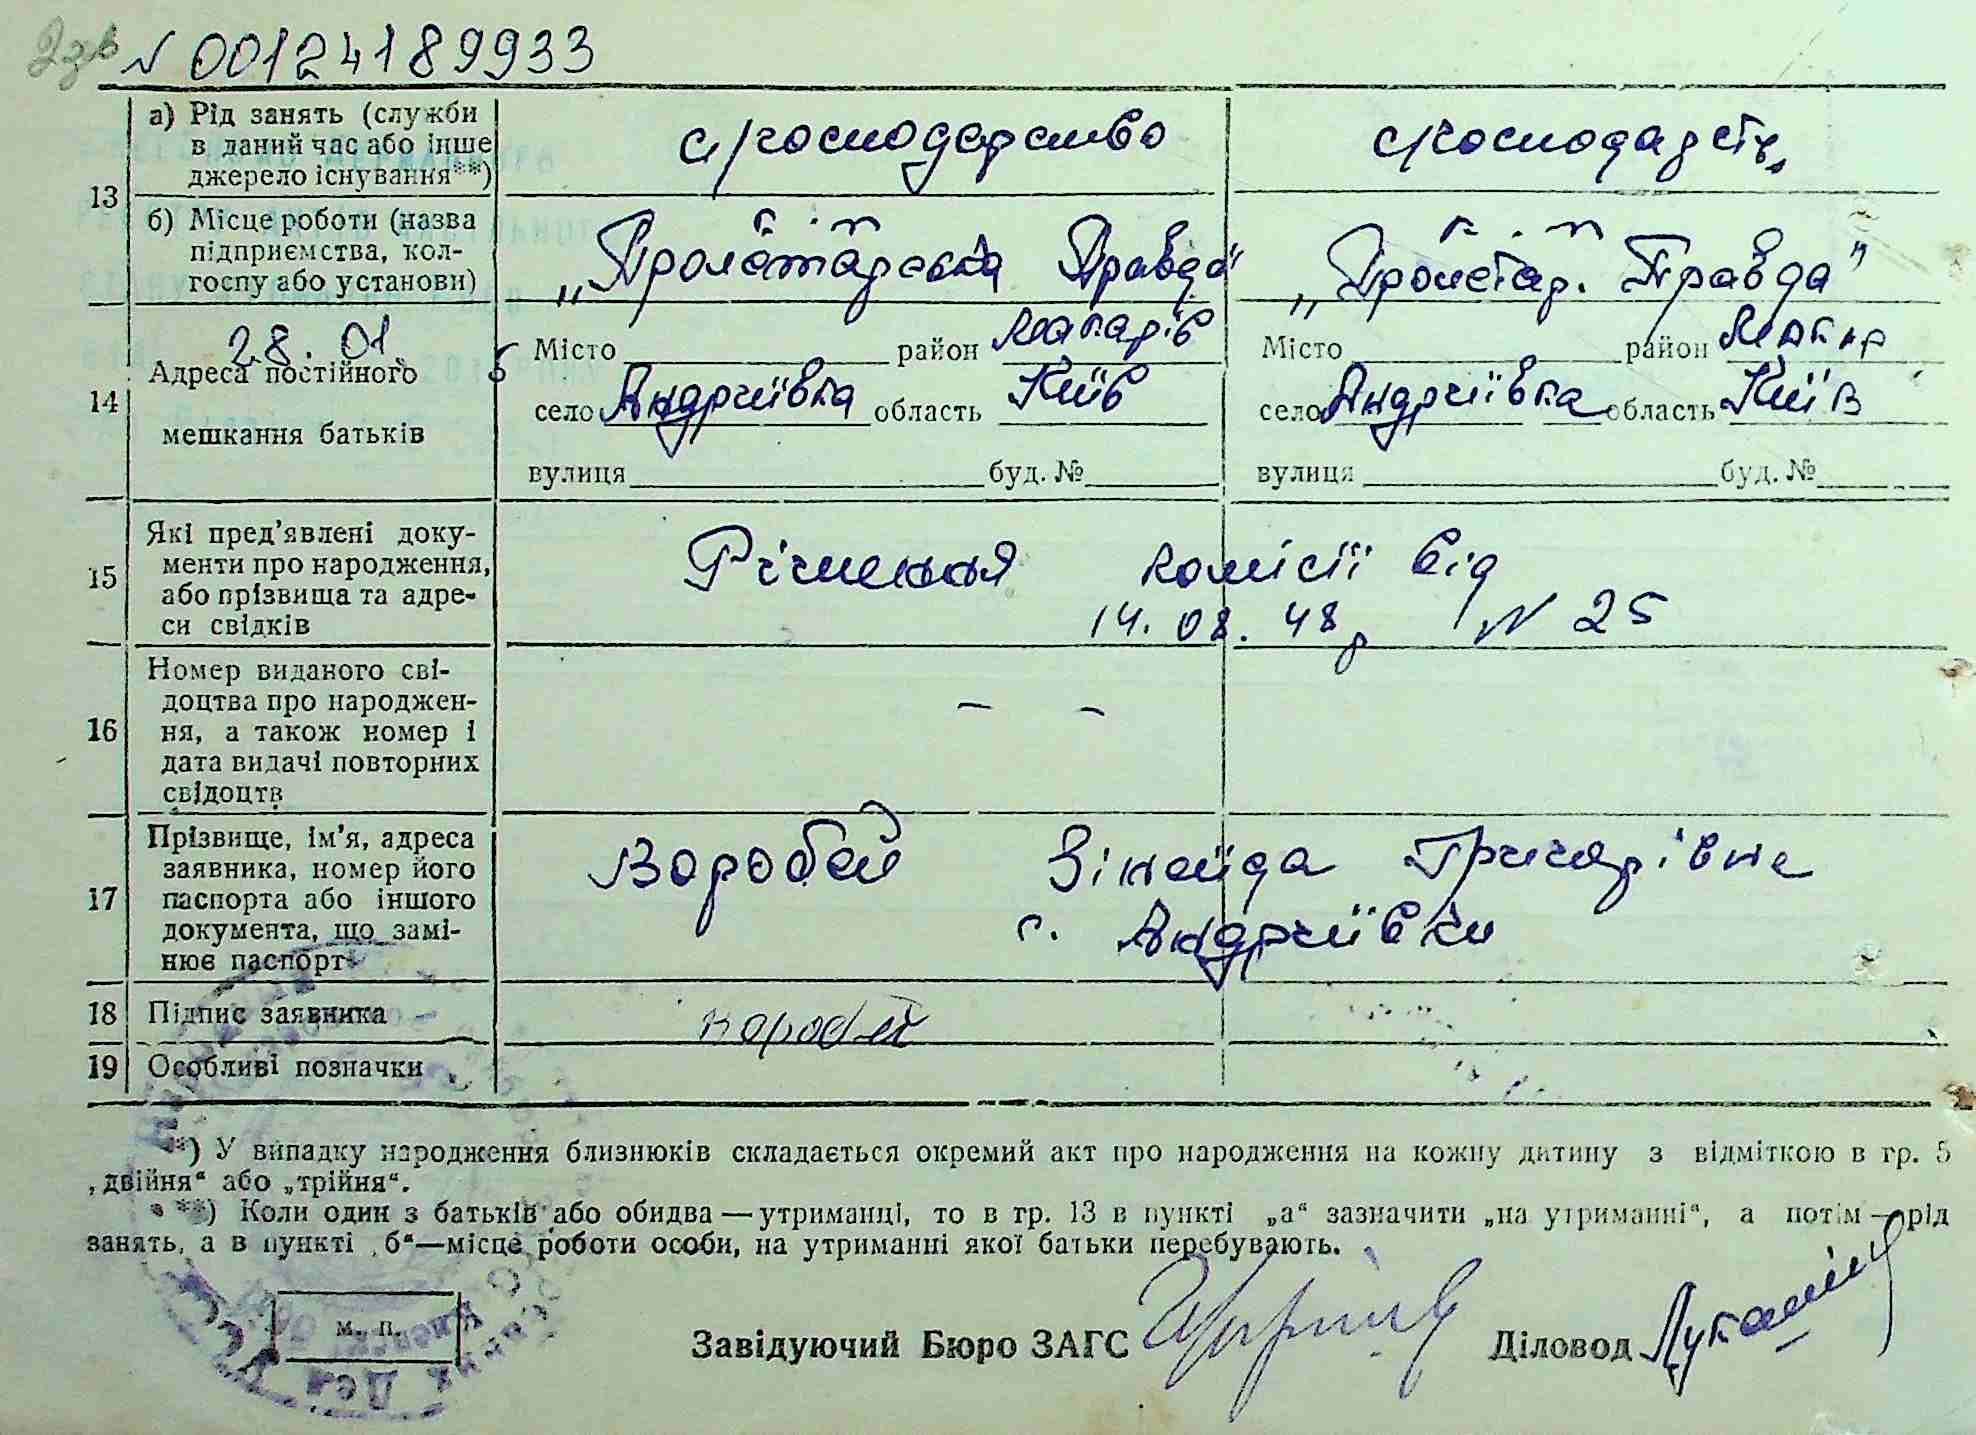 N 00124189933
а) Рід занять (служби в даний час або інше джерело існування**)
с/господарство
13
б) Місце роботи (назва підприємства, колгоспу або установи)
„Пролетарська Правда“ „Пролетар. Правда“
28. 01.
14 Адреса постійного мешкання батьків
Місто район Макарів Місто район Макар
село Андриївка область Київ село Андриївка область Київ
вулиця буд. № вулиця буд. №
15 Які пред’явлені документи про народження, або прізвища та адреси свідків
Рішення комісії від
14. 08. 48 р N 25
16 Номер виданого свідоцтва про народження, а також номер і дата видачі повторних свідоцтв
— —
17 Прізвище, ім’я, адреса заявника, номер його паспорта або іншого документа, що замінює паспорт
Воробей Зінаїда Григорівна
с. Андриївки
18 Підпис заявника Воробей
19 Особливі позначки
*) У випадку народження близнюків складається окремий акт про народження на кожну дитину з відміткою в гр. 5
„двійня“ або „трійня“.
**) Коли один з батьків або обидва — утриманці, то в гр. 13 в пункті „а“ зазначити „на утриманні“, а потім — рід
занять, а в пункті „б“—місце роботи особи, на утриманні якої батьки перебувають.
м. п.
Завідуючий Бюро ЗАГС Діловод